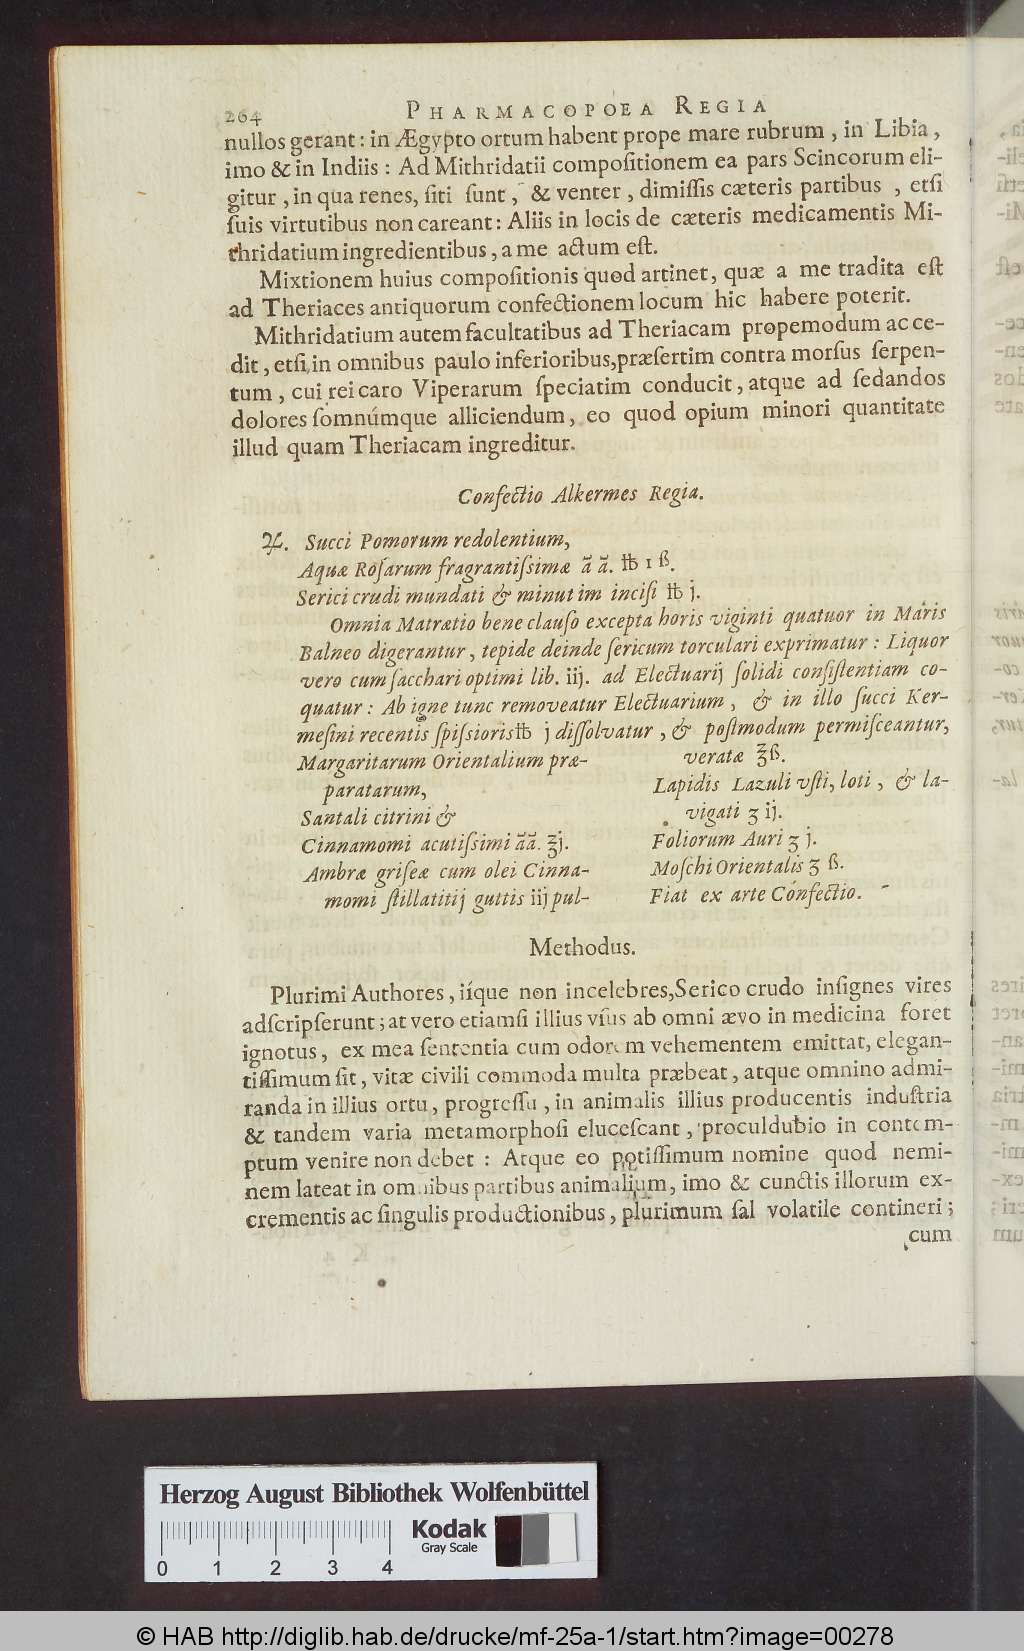 264 PHARMACOPOEA REGIA
nullos gerant: in Ægypto ortum habent prope mare rubrum, in Libia,
imo & in Indiis: Ad Mithridatii compoſitionem ea pars Scincorum eli-
gitur, in qua renes, ſiti ſunt, & venter, dimiſſis cæteris partibus, etſi
ſuis virtutibus non careant: Aliis in locis de cæteris medicamentis Mi-
thridatium ingredientibus, a me actum eſt.
Mixtionem huius compoſitionis quod attinet, quæ a me tradita eſt
ad Theriaces antiquorum confectionem locum hic habere poterit.
Mithridatium autem facultatibus ad Theriacam propemodum acce-
dit, etſi in omnibus paulo inferioribus, præſertim contra morſus ſerpen-
tum, cui rei caro Viperarum ſpeciatim conducit, atque ad ſedandos
dolores ſomnúmque alliciendum, eo quod opium minori quantitate
illud quam Theriacam ingreditur.
Confectio Alkermes Regia.
♃. Succi Pomorum redolentium,
Aquæ Roſarum fragrantiſsimæ ā ā. ℔ 1 ß.
Serici crudi mundati & minutim inciſi ℔ j.
Omnia Matrætio bene clauſo excepta horis viginti quatuor in Maris
Balneo digerantur, tepide deinde ſericum torculari exprimatur: Liquor
vero cum ſacchari optimi lib. iij. ad Electuarij ſolidi conſiſtentiam co-
quatur: Ab igne tunc removeatur Electuarium, & in illo ſucci Ker-
meſini recentis ſpiſsioris ℔ j diſſolvatur, & poſtmodum permiſceantur,
Margaritarum Orientalium præ-
paratarum,
Santali citrini &
Cinnamomi acutiſsimi āā. ℥j.
Ambræ griſeæ cum olei Cinna-
momi ſtillatitij guttis iij pul-
veratæ ℥ß.
Lapidis Lazuli vſti, loti, & la-
vigati ʒ ij.
Foliorum Auri ʒ j.
Moſchi Orientalis ʒ ß.
Fiat ex arte Cónfectio.
Methodus.
Plurimi Authores, iíque non incelebres, Serico crudo inſignes vires
adſcripſerunt; at vero etiamſi illius vſus ab omni ævo in medicina foret
ignotus, ex mea ſententia cum odorem vehementem emittat, elegan-
tiſſimum ſit, vitæ civili commoda multa præbeat, atque omnino admi-
randa in illius ortu, progreſſu, in animalis illius producentis induſtria
& tandem varia metamorphoſi eluceſcant, proculdubio in contem-
ptum venire non debet: Atque eo potiſſimum nomine quod nemi-
nem lateat in omnibus partibus animalium, imo & cunctis illorum ex-
crementis ac ſingulis productionibus, plurimum ſal volatile contineri;
cum
Herzog August Bibliothek Wolfenbüttel
Kodak
Gray Scale
0 1 2 3 4
© HAB http://diglib.hab.de/drucke/mf-25a-1/start.htm?image=00278